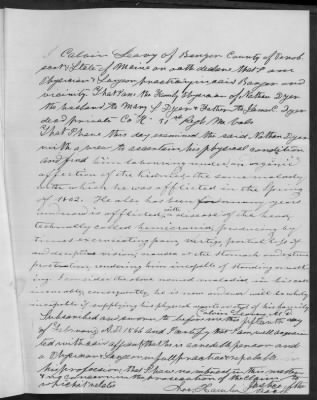 I Calvin Seavey of Bangor County of Penob
scot & State of Maine on oath declare that I am a
Physician & Surgeon practising in said Bangor and
vicinity. That I am the family Physician of Nathan Dyer
the husband to Mary S Dyer & Father to James C. Dyer
dead private Co "K" 11th Regt Me Vols
That I have this day examined the said Nathan Dyer
with a view to ascertain his physical condition
and find him labouring under an organic
affection of the kidneys, the same malady
with which he was afflicted in the Spring
of 1862. He also has been for many years
and now is afflicted with a disease of the head,
technically called hemicrania, producing by
times excruciating pain, vertigo, partial loss of
and deceptive vision; nausea at the stomach and extreme
prostration, rendering him incapable of standing or walk-
ing. I consider the above named maladies in his case
incurable, consequently, he is now and ever will be wholly
incapable of supplying his physical wants or that of his family
Calvin Seavey M.D.
Subscribed and sworn to before me this fifteenth day
of February A.D. 1866 and I certify that I am well acquain
ted with said affiant that he is a credible person and
a Physician & Surgeon in full practice & reputable
in his profession; that I have no interest in this matter
or any concern in the prosecution of the claim to
which it relates